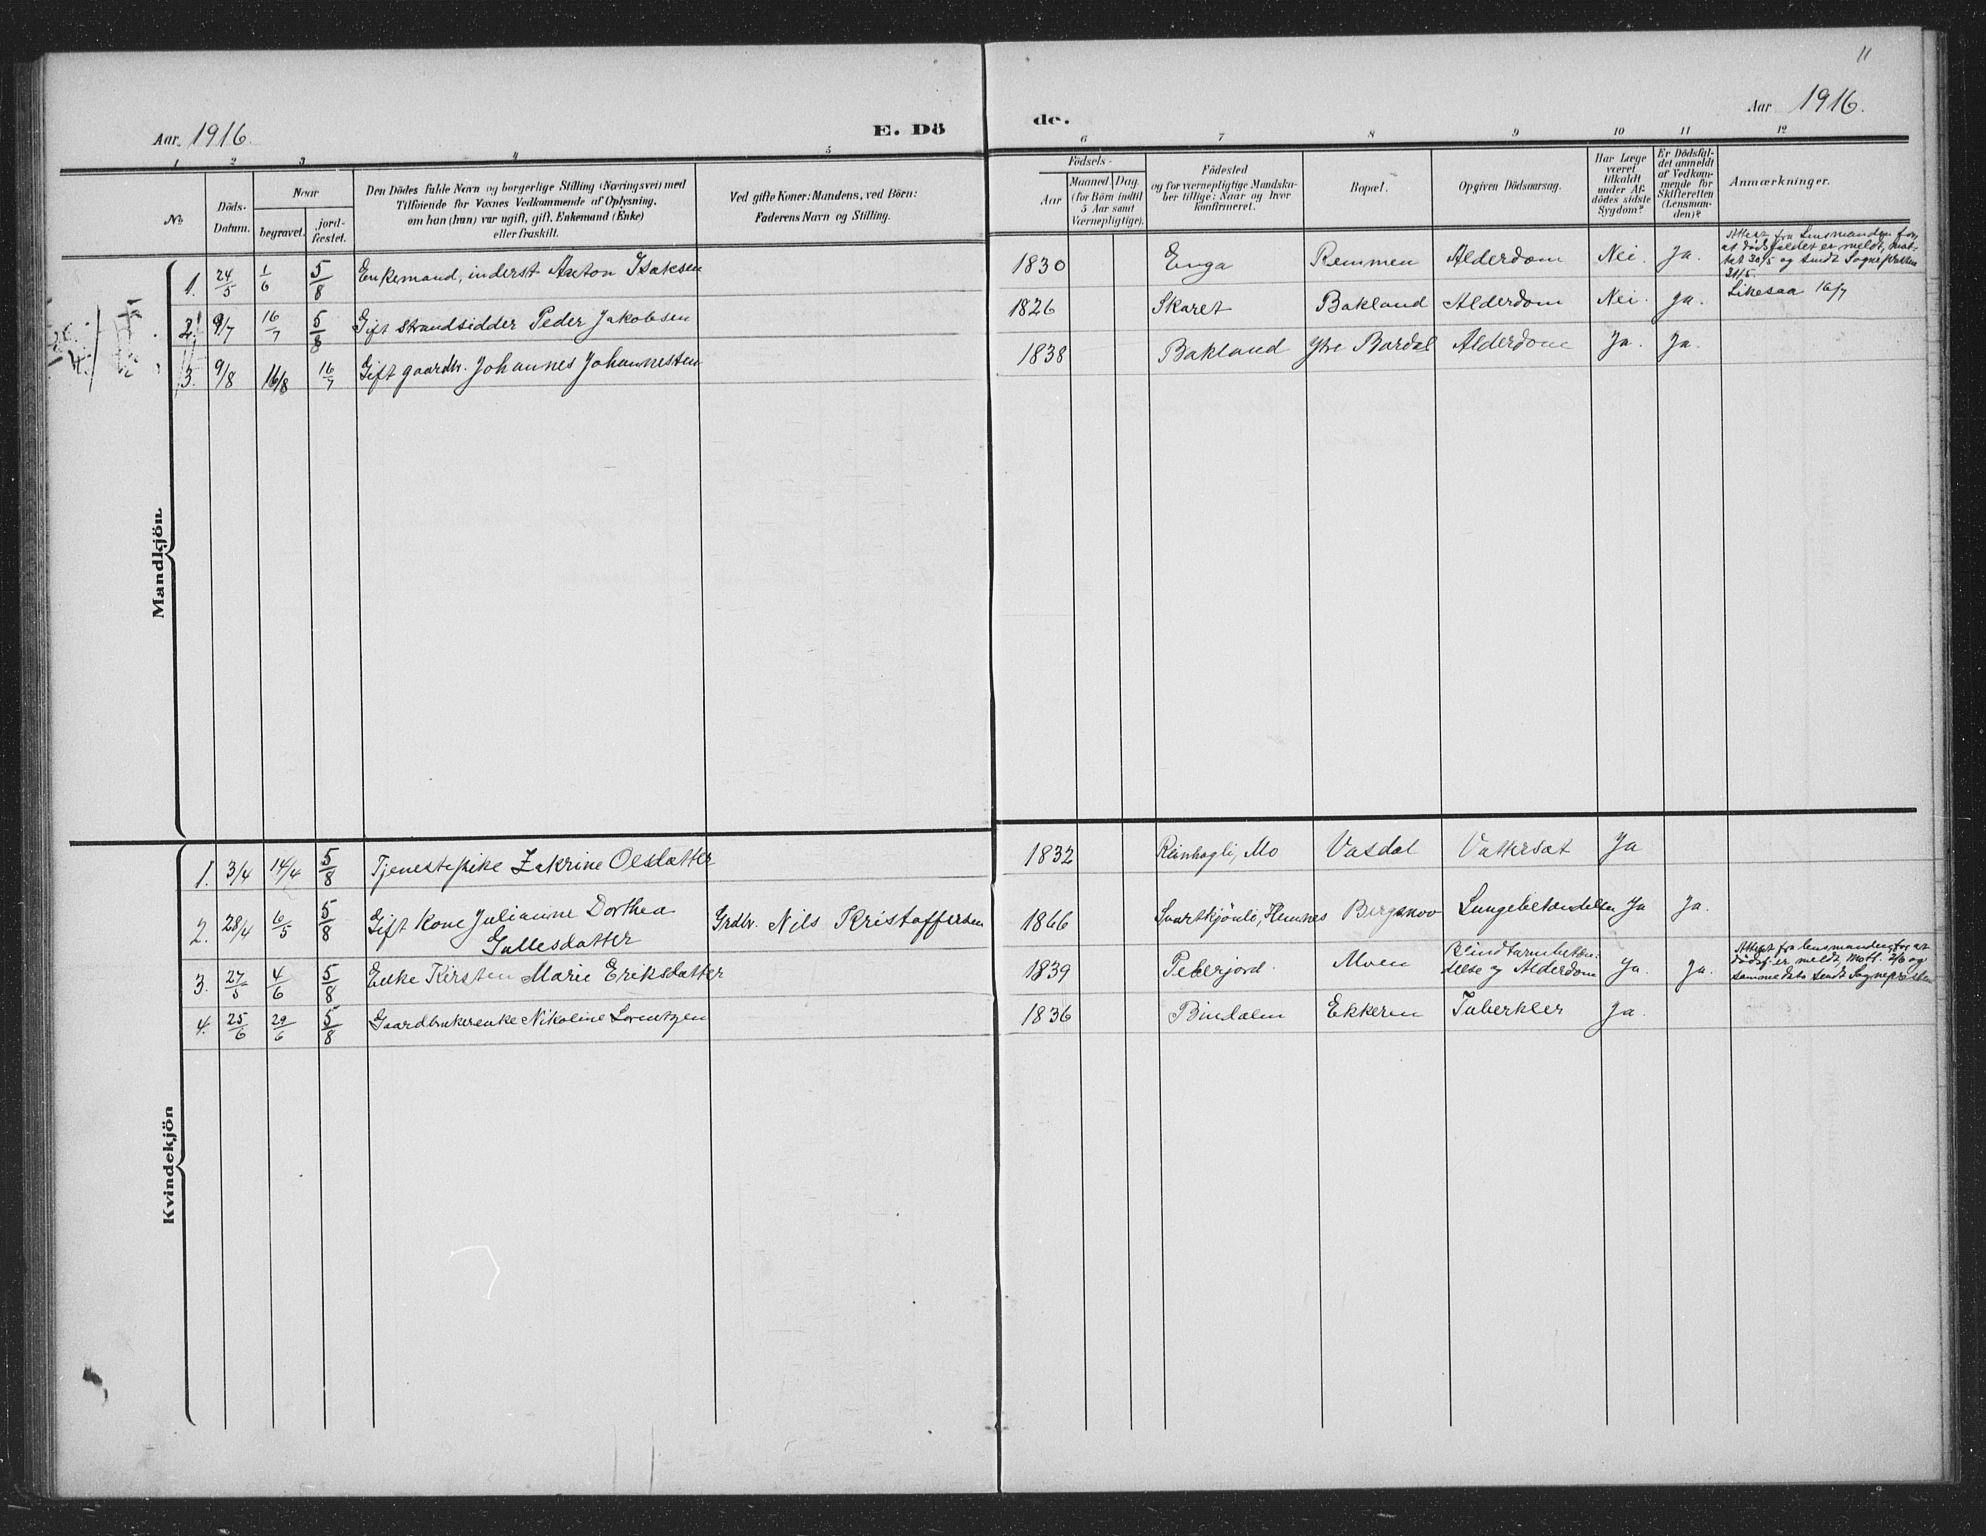 11
Aar 1916.
E. Dö
de.
Aar 1916.
1 2 3 4 5 6 7 8 9 10 11 12
No
Döds-
Datum.
Naar
begravet.
jord-
fæstet.
Den Dödes fulde Navn og borgerlige Stilling (Næringsvei) med
Tilföiende for Voxnes Vedkommende af Oplysning,
om han (hun) var ugift, gift, Enkemand (Enke)
eller fraskilt.
Ved gifte Koner: Mandens, ved Börn:
Faderens Navn og Stilling.
Födsels-
Aar
Maaned Dag.
(for Börn indtil
5 Aar samt
Værnepligtige).
Födested
og for værnepligtige Mandska-
ber tillige: Naar og hvor
konfirmeret.
Bopæl.
Opgiven Dödsaarsag.
Har Læge
været
tilkaldt
under Af-
dödes sidste
Sygdom?
Er Dödsfal-
det anmeldt
af Vedkom-
mende for
Skifteretten
(Lensman-
den)?
Anmærkninger.
Mandkjön.
1. 24/5 1/6 5/8 Enkemand, inderst Anton Isaksen 1830 Enga Remmen Alderdom Nei. Ja. Attest fra Lensmanden for,
at dödsfaldet er meldt, mot-
tat 30/5 og sendt Sognepresten
31/5.
2. 9/7 16/7 5/8 Gift Strandsidder Peder Jakobsen 1826 Skaret Bakland Alderdom Nei. ja. Likesaa 16/7
3. 9/8 16/8 16/7 Gift gaardbr. Johannes Johannessen 1838 Bakland Ytre Bardal Alderdom Ja. Ja.
Kvindekjön
1. 3/4 14/4 5/8 Tjenestepike Zakrine Olsdatter 1832 Reinhagli, Mo Vasdal Vattersot Ja
2. 28/4 6/5 5/8 Gift Kone Julianne Dorthea
Gullesdatter Grdbr. Nils Kristoffersen 1866 Svartkjönli, Hemnes Bergsnov Lungebetændelse Ja Ja.
3. 27/5 4/6 5/8 Enke Kirsten Marie Eriksdatter 1839 Peterjord. Alven Blindtarmbetæn-
delse og Alderdom Ja. Ja. Attest fra lensmanden for at
dödsf. er meldt, mott. 2/6 og
sammedato sendt Sognepresten
4. 25/6 29/6 5/8 Gaardbrukerenke Nikoline Lorentzen 1836 Bindalen Ekkeren Tuberkler Ja.